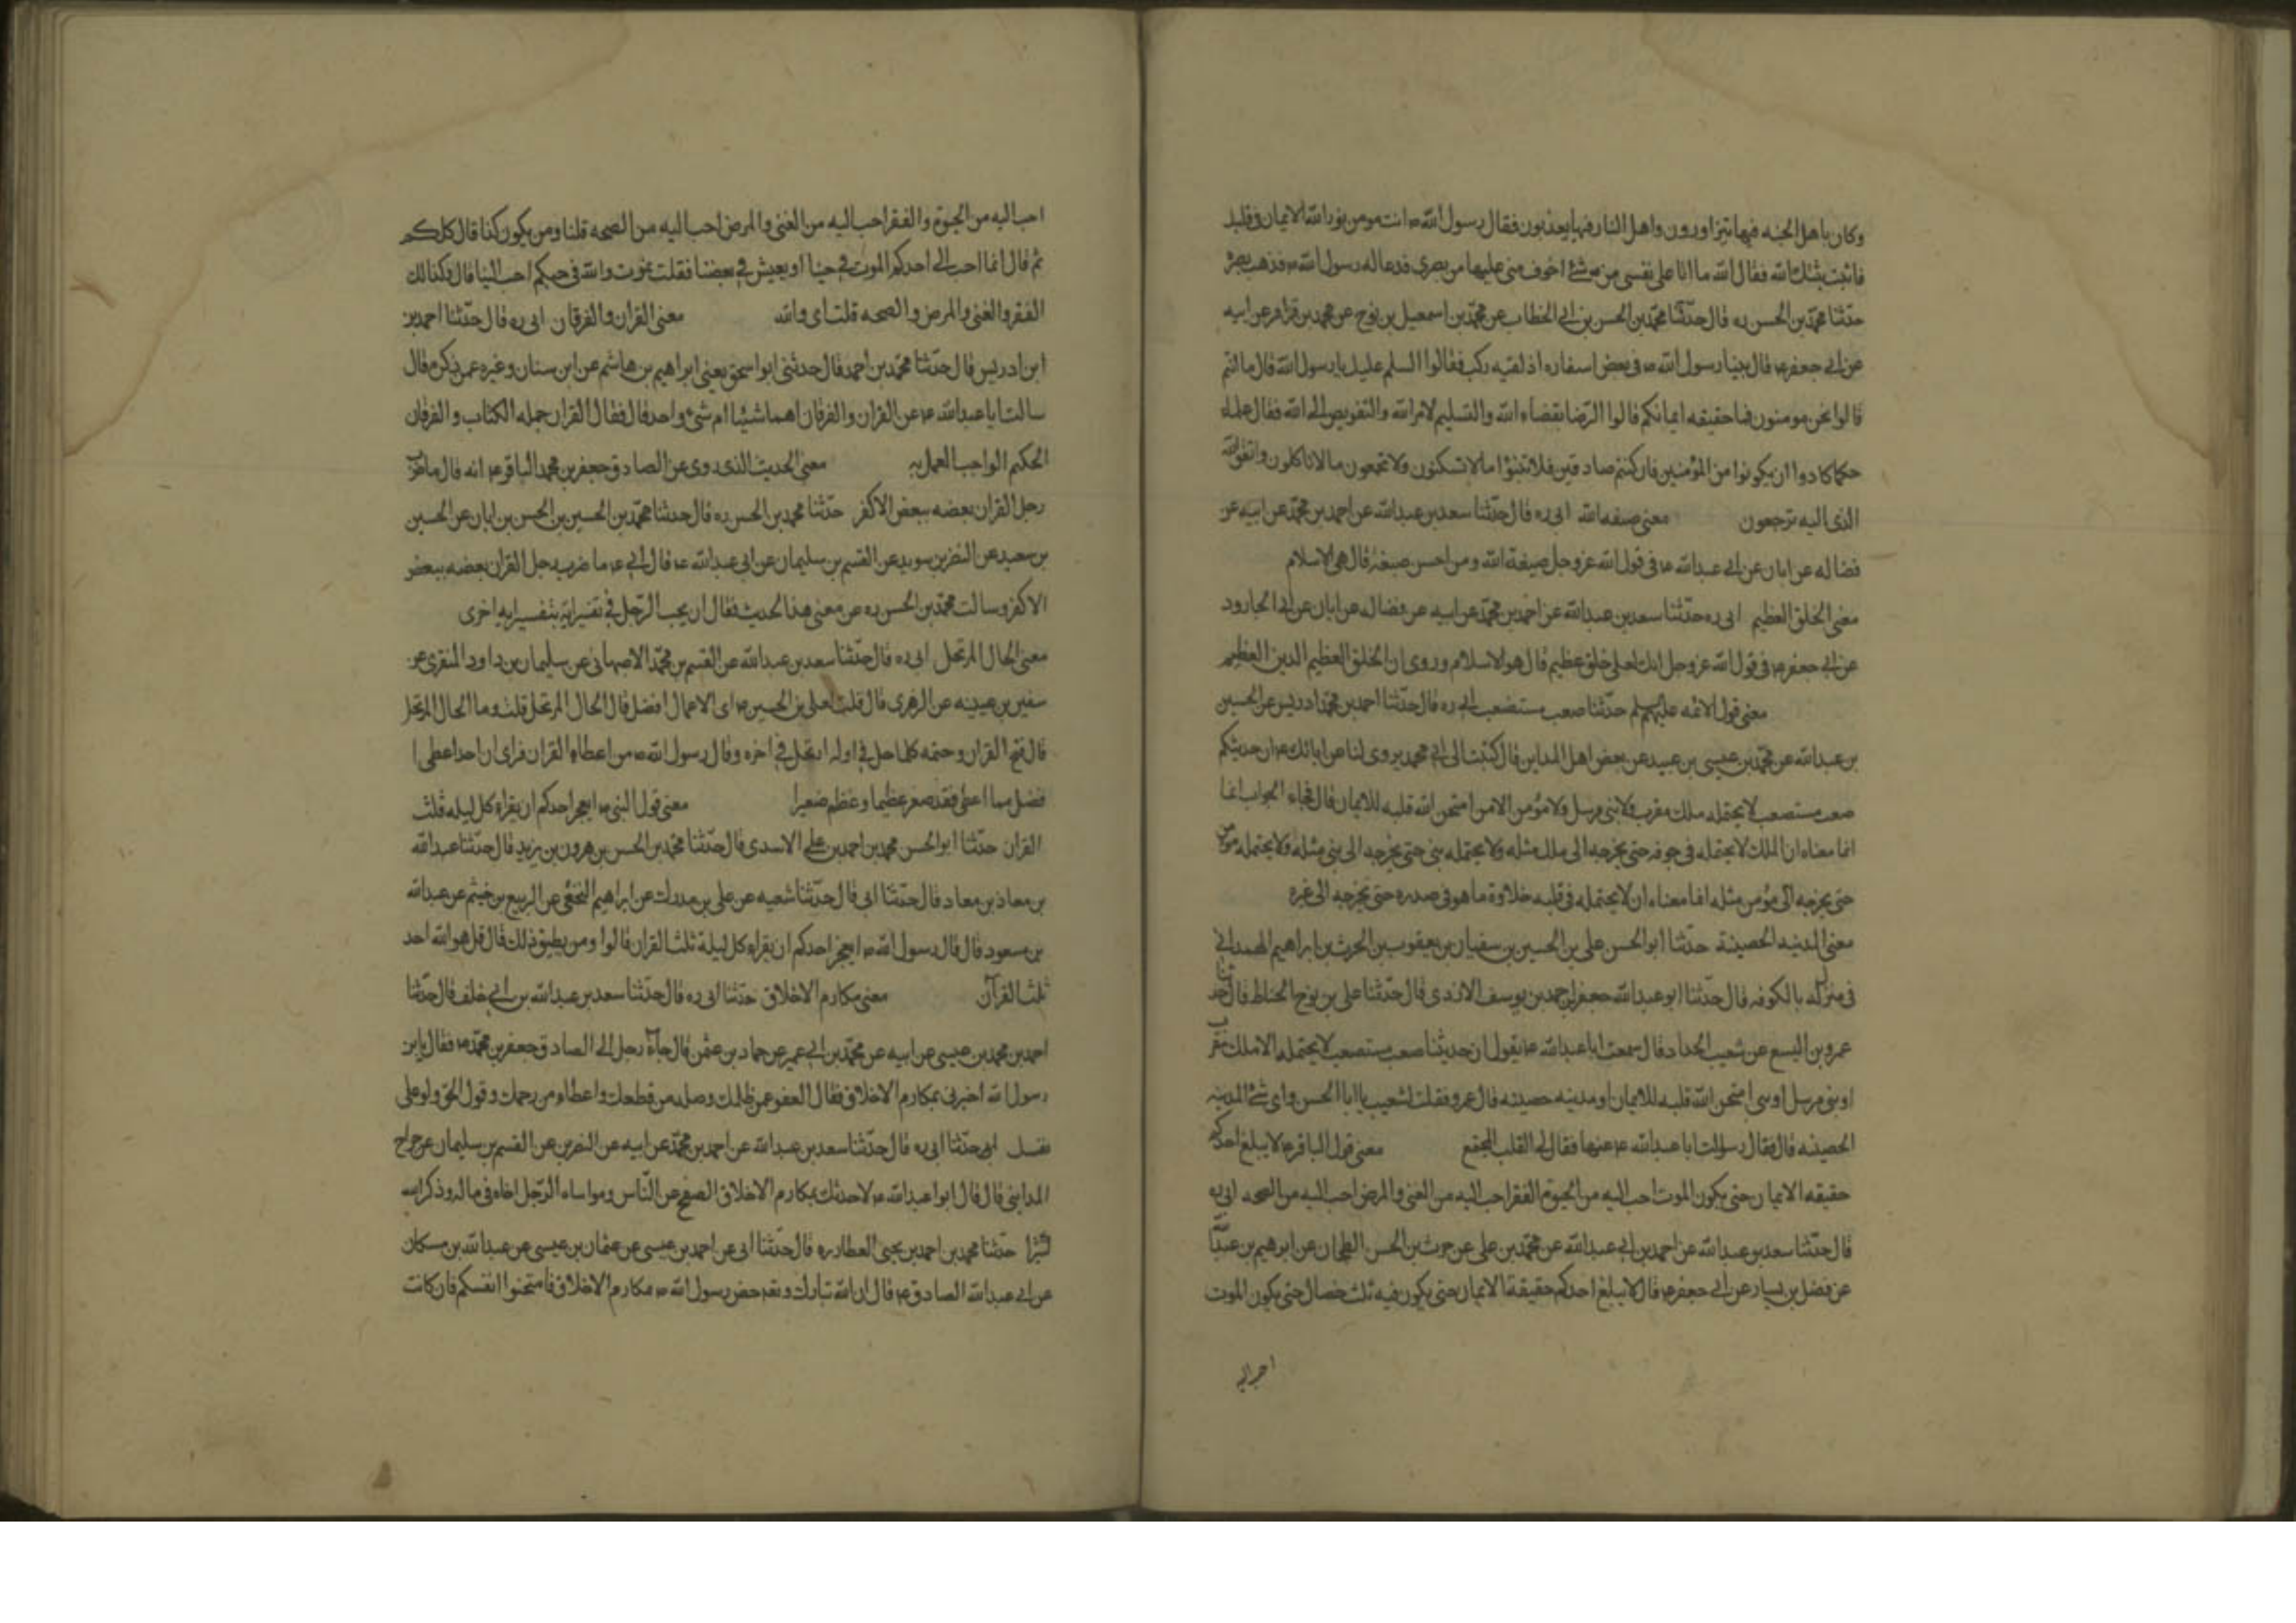 وكان باهل الجنه فيها يتزاورون واهل النار فيها يعذبون فقال رسول الله ص انت مومن نور الله الايمان في قلبك
فاثبت ثبتك الله فقال الله ما انا على نفسي من شئ اخوف مني عليها من بصري فدعا له رسول الله ص فذهب بصره
حدثنا محمد بن الحسن ره قال حدثنا محمد بن الحسن بن ابي الخطاب عن محمد بن اسمعيل بن بزيع عن محمد بن عذافر عن ابيه
عن ابي جعفر ع قال بينا رسول الله ص في بعض اسفاره اذ لقيه ركب فقالوا السلم عليك يا رسول الله قال ما انتم
قالوا نحن مومنون فما حقيقه ايمانكم قالوا الرضا بقضاء الله والتسليم لامر الله والتفويض الى الله فقال علماء
حكما كادوا ان يكونوا من المؤمنين فان كنتم صادقين فلا تبنوا ما لا تسكنون ولا تجمعون ما لا تاكلون واتقوا الله
الذي اليه ترجعون معنى صبغه الله ابي ره قال حدثنا سعد بن عبد الله عن احمد بن محمد عن ابيه عن
فضاله عن ابان عن ابي عبد الله ع في قول الله عز وجل صبغة الله ومن احسن صبغة قال هي الاسلام
معنى الخلق العظيم ابي ره حدثنا سعد بن عبد الله عن احمد بن محمد عن ابيه عن فضاله عن ابان عن ابي الجارود
عن ابي جعفر ع في قول الله عز وجل انك لعلى خلق عظيم قال هو الاسلام وروي ان الخلق العظيم الدين العظيم
معنى قول الائمه عليهم السلم حدثنا صعب مستصعب ابي ره قال حدثنا احمد بن محمد ادريس عن الحسين
بن عبد الله عن محمد بن عيسى بن عبيد عن بعض اهل المداين قال كتبت الى ابي محمد يروى لنا عن ابائك ع ان حديثكم
صعب مستصعب لا يحتمله ملك مقرب ولا نبي مرسل ولا مؤمن الا من امتحن الله قلبه للايمان قال فجاء الجواب انما
انما معناه ان الملك لا يحتمله في جوفه حتى يخرجه الى ملك مثله ولا يحتمله نبي حتى يخرجه الى نبي مثله ولا يحتمله مؤمن
حتى يخرجه الى مؤمن مثله انما معناه ان لا يحتمله في قلبه حلاوة ما هو في صدره حتى يخرجه الى غيره
معنى المدينه الحصينة حدثنا ابو الحسن علي بن الحسين بن سفيان بن يعقوب بن الحرث بن ابراهيم الهمداني
في منزله بالكوفه قال حدثنا ابو عبد الله جعفر بن احمد بن يوسف الازدي قال حدثنا علي بن بزرج الحناط قال حدثنا
عمرو بن اليسع عن شعيب الحداد قال سمعت ابا عبد الله ع يقول ان حديثنا صعب مستصعب لا يحتمله الا ملك مقرب
او نبي مرسل او امتحن الله قلبه للايمان او مدينه حصينه قال عمرو فقلت لشعيب يا ابا الحسن واي شئ المدينه
الحصينه قال فقال سالت ابا عبد الله ع عنها فقال لي القلب المجتمع معنى قول الباقر ع لا يبلغ احدكم
حقيقه الايمان حتى يكون الموت احب اليه من الحيوة الفقر احب اليه من الغنى والمرض احب اليه من الصحه ابي ره
قال حدثنا سعد بن عبد الله عن احمد بن ابي عبد الله عن محمد بن علي عن حرث بن الحسن الطحان عن ابرهيم بن عبد الله
عن فضل بن يسار عن ابي جعفر ع قال لا يبلغ احدكم حقيقة الايمان حتى يكون فيه ثلث خصال حتى يكون الموت
احب اليه
احب اليه من الحيوة والفقر احب اليه من الغنى والمرض احب اليه من الصحه قلنا ومن يكون كذا قال كلكم
ثم قال انما احب الى احدكم الموت في حبنا او يعيش في بعضنا فقلت نموت والله في حبكم احب الينا قال وكذلك
الفقر والغنى والمرض والصحه قلت اي والله معنى القران والفرقان ابي ره قال حدثنا احمد بن
ابن ادريس قال حدثنا محمد بن احمد قال حدثني ابو اسحق يعني ابراهيم بن هاشم عن ابن سنان وغيره عمن ذكره قال
سالت ابا عبد الله ع عن القران والفرقان اهما شيئا ام شئ واحد قال فقال القران جمله الكتاب والفرقان
الحكيم الواجب العمل به معنى الحديث الذي روى عن الصادق جعفر بن محمد الباقر ع انه قال ما ضرب
رجل القران بعضه ببعض الا كفر حدثنا محمد بن الحسن ره قال حدثنا محمد بن الحسين بن الحسن بن ابان عن الحسين
بن سعيد عن النضر بن سويد عن القسم بن سليمان عن ابي عبد الله ع قال ابي ع ما ضرب رجل القران بعضه ببعض
الا كفر وسالت محمد بن الحسن ره عن معنى هذا الحديث فقال ان يجب الرجل في تفسير اية بتفسير ايه اخرى
معنى الحال المرتحل ابي ره قال حدثنا سعد بن عبد الله عن القسم بن محمد الاصبهاني عن سليمان بن داود المنقري عن
سفين بن عيينه عن الزهري قال قلت لعلي بن الحسين ع اي الاعمال افضل قال الحال المرتحل قلت وما الحال المرتحل
قال فتح القران وختمه كلما حل في اوله ارتحل في اخره وقال رسول الله ص من اعطاه القران فراى ان احدا اعطى ا
فضل مما اعطى فقد صغر عظيما وعظم صغيرا معنى قول النبي ص ايعجز احدكم ان يقراء كل ليله ثلث
القران حدثنا ابو الحسن محمد بن احمد بن علي الاسدي قال حدثنا محمد بن الحسن بن هرون بن زيد قال حدثنا عبد الله
بن معاذ بن معاد قال حدثنا ابي قال حدثنا شعبه عن علي بن مدرك عن ابراهيم النخعي عن الربيع بن خيثم عن عبد الله
بن مسعود قال قال رسول الله ص ايعجز احدكم ان يقراء كل ليلة ثلث القران قالوا ومن يطيق ذلك قال قل هو الله احد
ثلث القرآن معنى مكارم الاخلاق حدثنا ابي ره قال حدثنا سعد بن عبد الله بن ابي خلف قال حدثنا
احمد بن محمد بن عيسى عن ابيه عن محمد بن ابي عمير عن حماد بن عثمن قال جاء رجل الى الصادق جعفر بن محمد ع فقال يا بن
رسول الله اخبرني بمكارم الاخلاق فقال العفو عمن ظلمك وصله من قطعك واعطاء من حرمك وقول الحق ولو على
نفسك حدثنا ابي ره قال حدثنا سعد بن عبد الله عن احمد بن محمد عن ابيه عن النضر عن القسم بن سليمان عن جراح
المدايني قال قال ابو عبد الله ع لا حدثك بمكارم الاخلاق الصفح عن الناس ومواساه الرجل اخاه في ماله وذكر الله
كثيرا حدثنا محمد بن احمد بن يحيى العطار ره قال حدثنا ابي عن احمد بن عيسى عن عثمان بن عيسى عن عبد الله بن مسكان
عن ابي عبد الله الصادق ع قال ان الله تبارك وتع خص رسول الله ص مكارم الاخلاق فامتحنوا انفسكم فان كانت